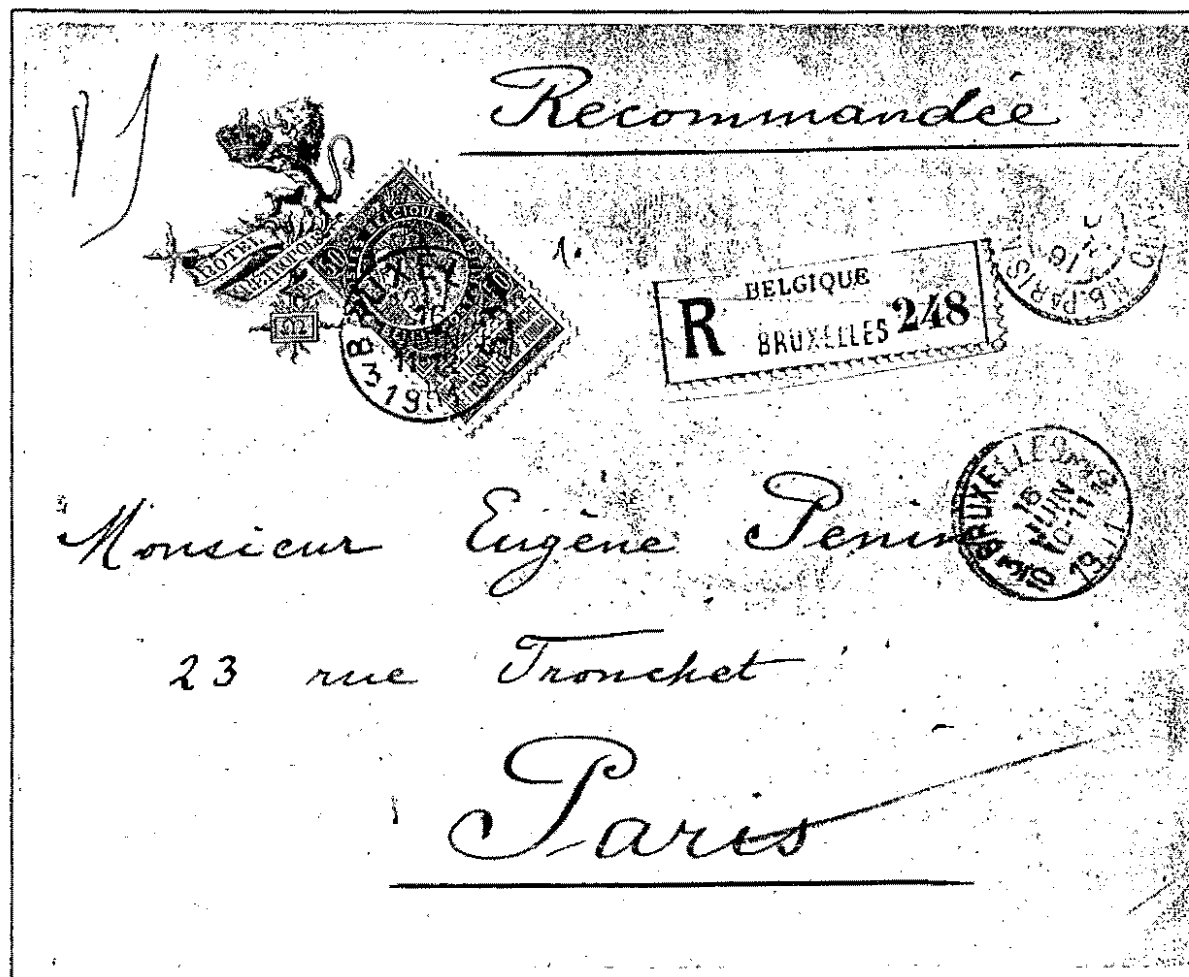 Recommandée
HOTEL
METROPOLE
BELGIQUE
50
BRUXEL
16
11-12
1911
R BELGIQUE
BRUXELLES 248
PARIS
16
BRUXELLES
16
JUIN
10-11
1911
Monsieur Eugène Penin
23 rue Tronchet
Paris